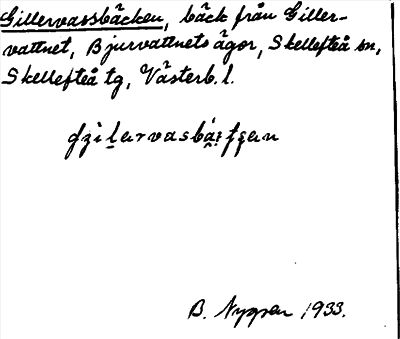 Gillervassbäcken, bäck från Giller-
vattnet, Bjurvattnets ägor, Skellefteå sn,
Skellefteå tg, Västerb. l.
B. Nygren 1933.